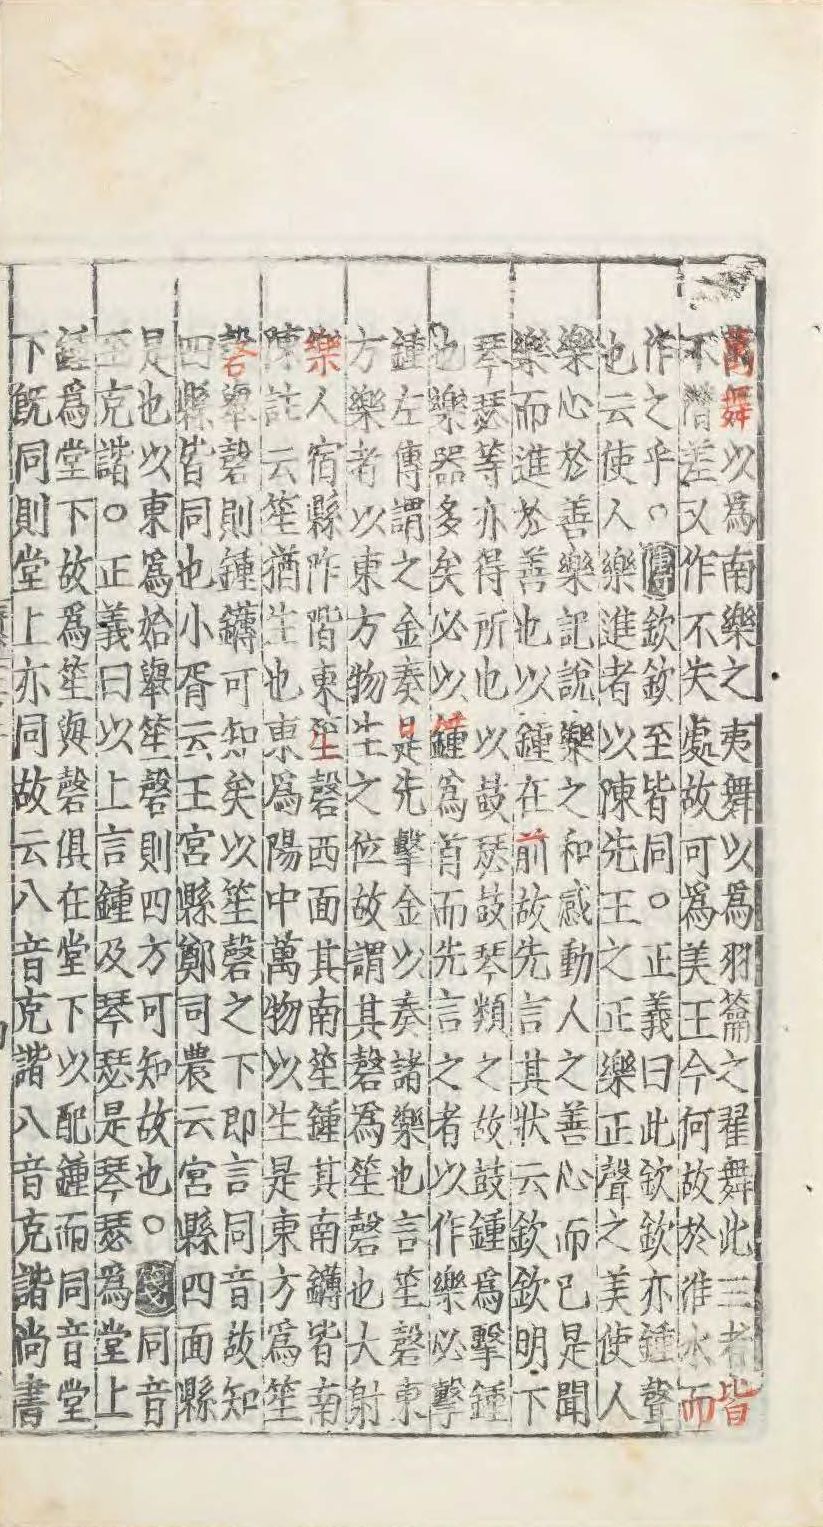 萬舞以爲南樂之夷舞以爲羽籥之翟舞此三者皆
不僭差又作不失處故可爲美王今何故於淮水而
作之乎○傳欽欽至皆同○正義曰此欽欽亦鍾聲
也云使人樂進者以陳先王之正樂正聲之美使人
樂心於善樂記說樂之和感動人之善心而已是聞
樂而進於善也以鍾在前故先言其狀云欽欽明下
琴瑟等亦得所也以鼓瑟鼓琴類之故鼓鍾爲擊鍾
也樂器多矣必以鍾爲首而先言之者以作樂必擊
鍾左傳謂之金奏是先擊金以奏諸樂也言笙磬東
方樂者以東方物生之位故謂其磬爲笙磬也大射
樂人宿縣阼階東笙磬西面其南笙鍾其南鑮皆南
陳註云笙猶生也東爲陽中萬物以生是東方爲笙
磬舉磬則鍾鑮可知矣以笙磬之下即言同音故知
四縣皆同也小胥云王宮縣鄭司農云宮縣四面縣
是也以東爲始舉笙磬則四方可知故也○箋同音
至克諧○正義曰以上言鍾及琴瑟是琴瑟爲堂上
鍾爲堂下故爲笙與磬俱在堂下以配鍾而同音堂
下既同則堂上亦同故云八音克諧八音克諧尚書